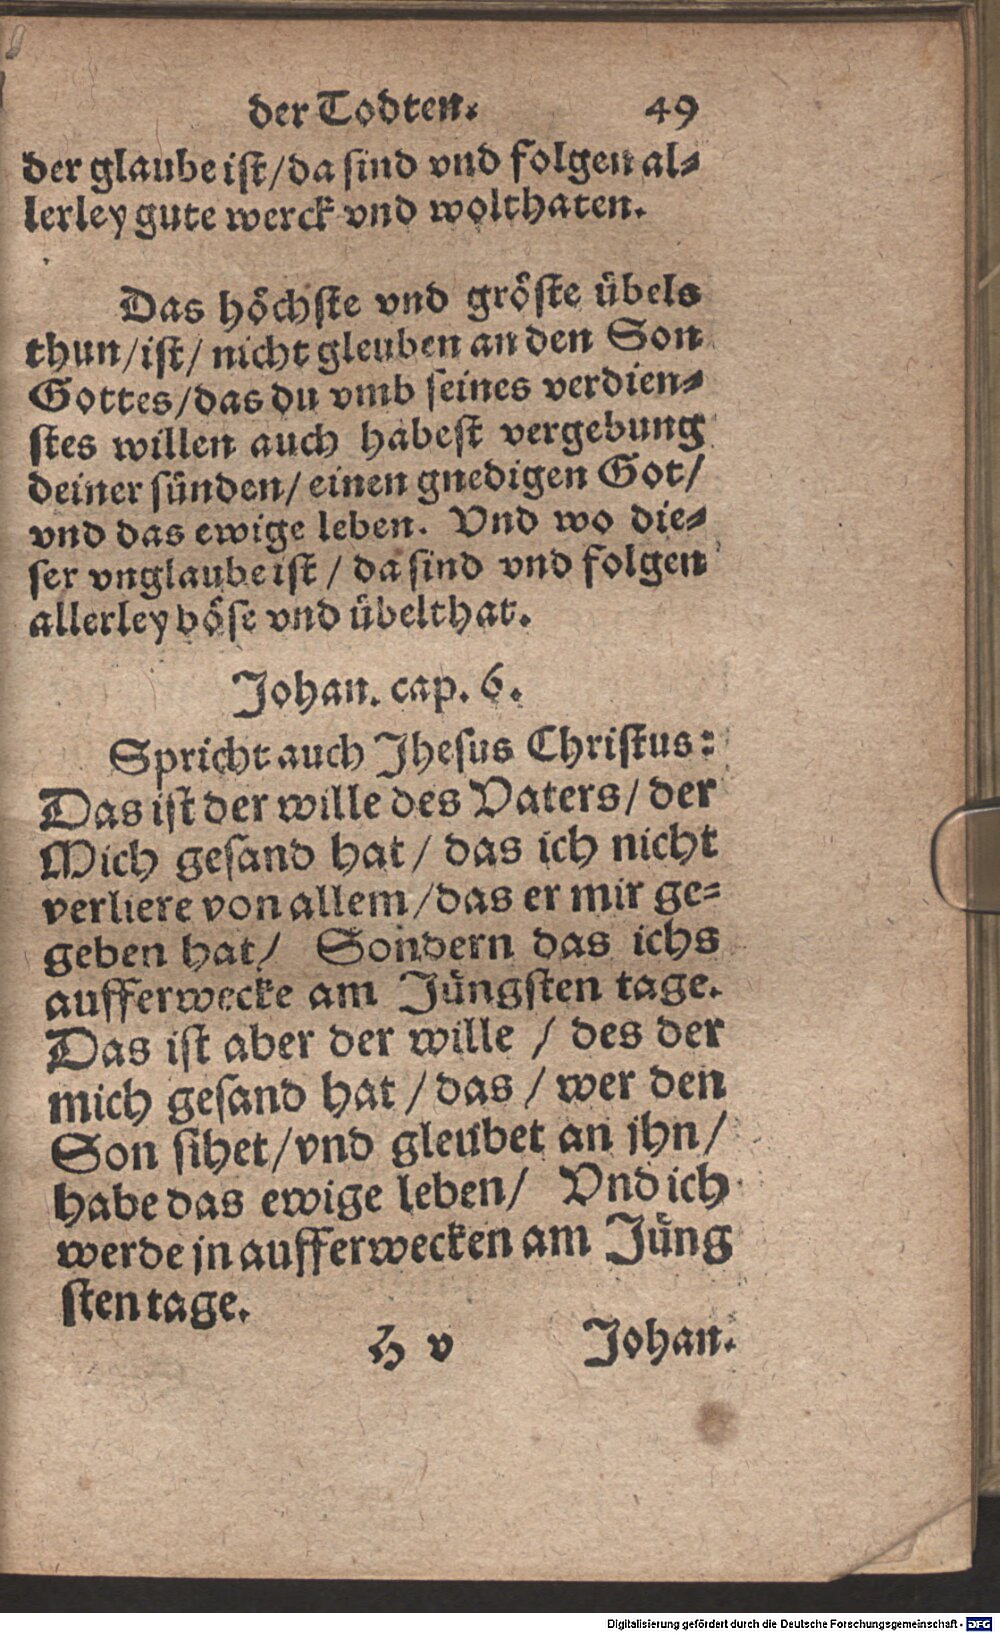 der Todten. 49
der glaube ist/da sind vnd folgen al⸗
lerley gute werck vnd wolthaten.
Das höchste vnd gröste übels
thun/ist/ nicht gleuben an den Son
Gottes/das du vmb seines verdien⸗
stes willen auch habest vergebung
deiner sünden/ einen gnedigen Got/
vnd das ewige leben. Vnd wo die⸗
ser vnglaube ist / da sind vnd folgen
allerley böse vnd übelthat.
Johan. cap. 6.
Spricht auch Jhesus Christus:
Das ist der wille des Vaters/ der
Mich gesand hat/ das ich nicht
verliere von allem/das er mir ge⸗
geben hat/ Sondern das ichs
aufferwecke am Jüngsten tage.
Das ist aber der wille / des der
mich gesand hat /das / wer den
Son sihet/vnd gleübet an jhn/
habe das ewige leben/ Vnd ich
werde jn aufferwecken am Jüng
sten tage.
H v Johan.
Digitalisierung gefördert durch die Deutsche Forschungsgemeinschaft - DFG